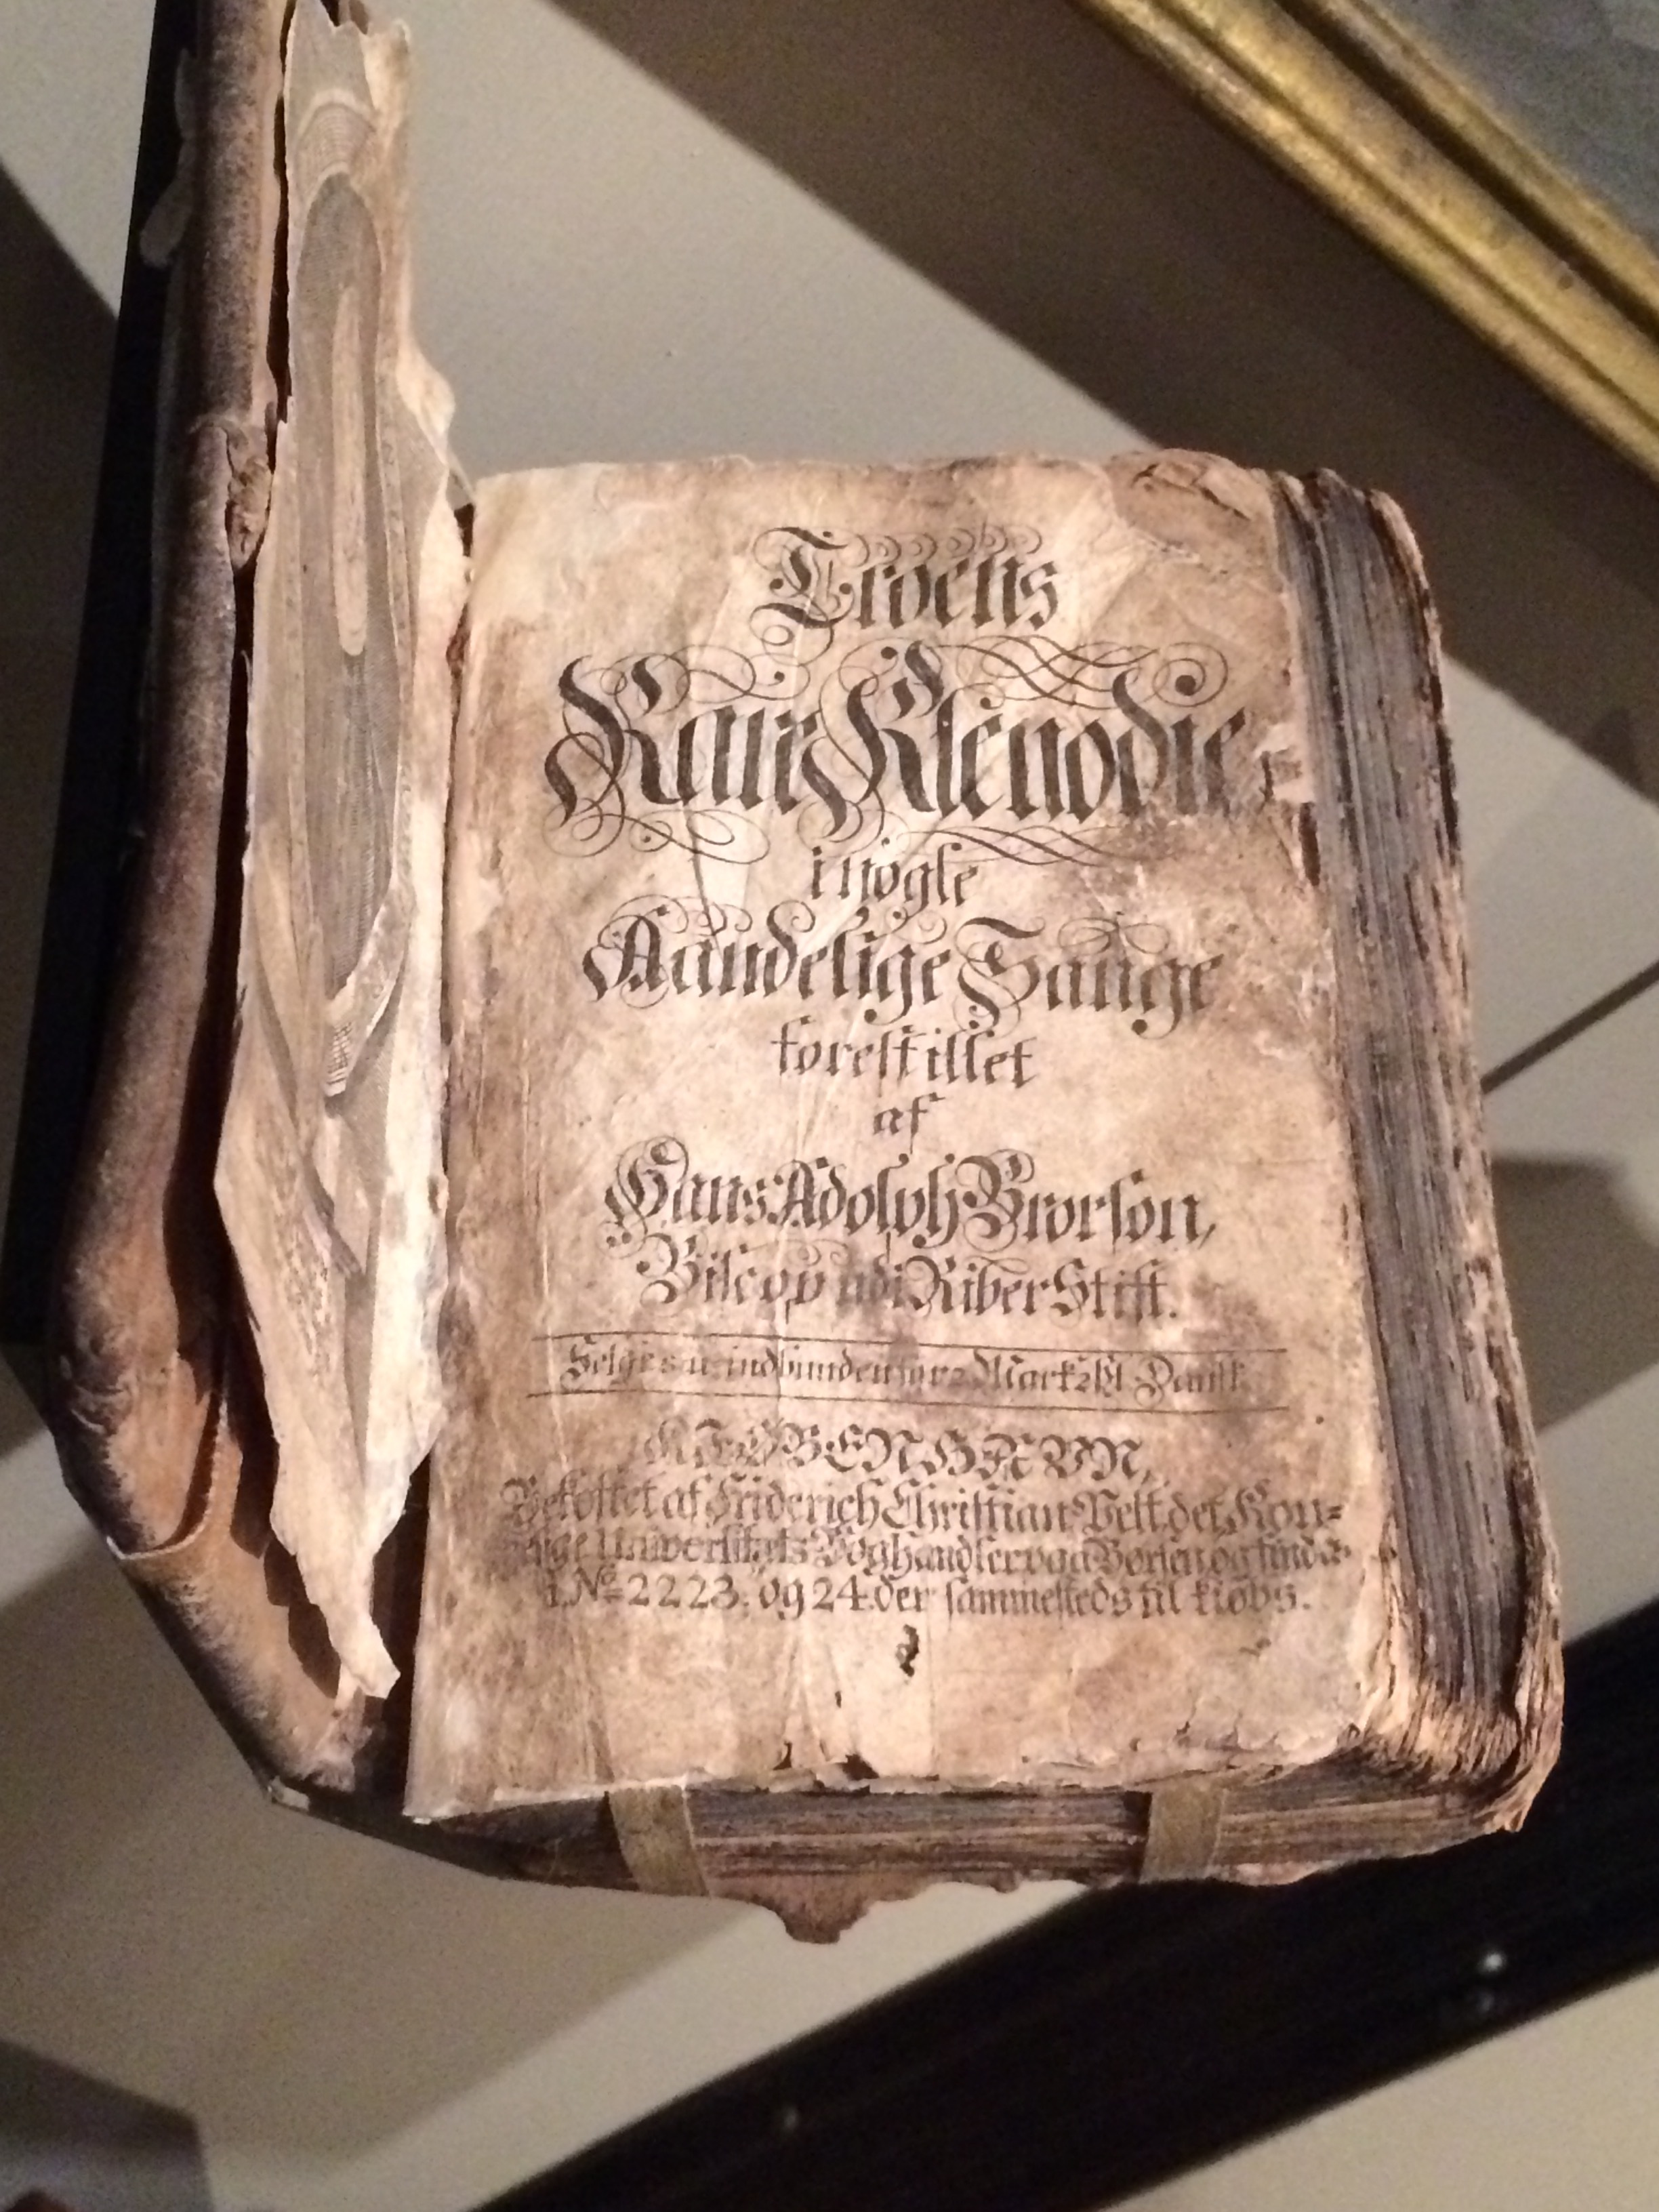 Troens
Rare Klenodie,
i nogle
Aandelige Sange
forestillet
af
Hans Adolph Brorson,
Biscop udi Riber Stift.
Selges uindbunden for 2 Mark 2 ßl. Dansk
KIÖBENHAVN,
Bekostet af Friderich Christian Pelt, det Kon-
gelige Universitæts Boghandler paa Börsen, og findes
i No 22 23. og 24. der sammesteds til kiöbs.